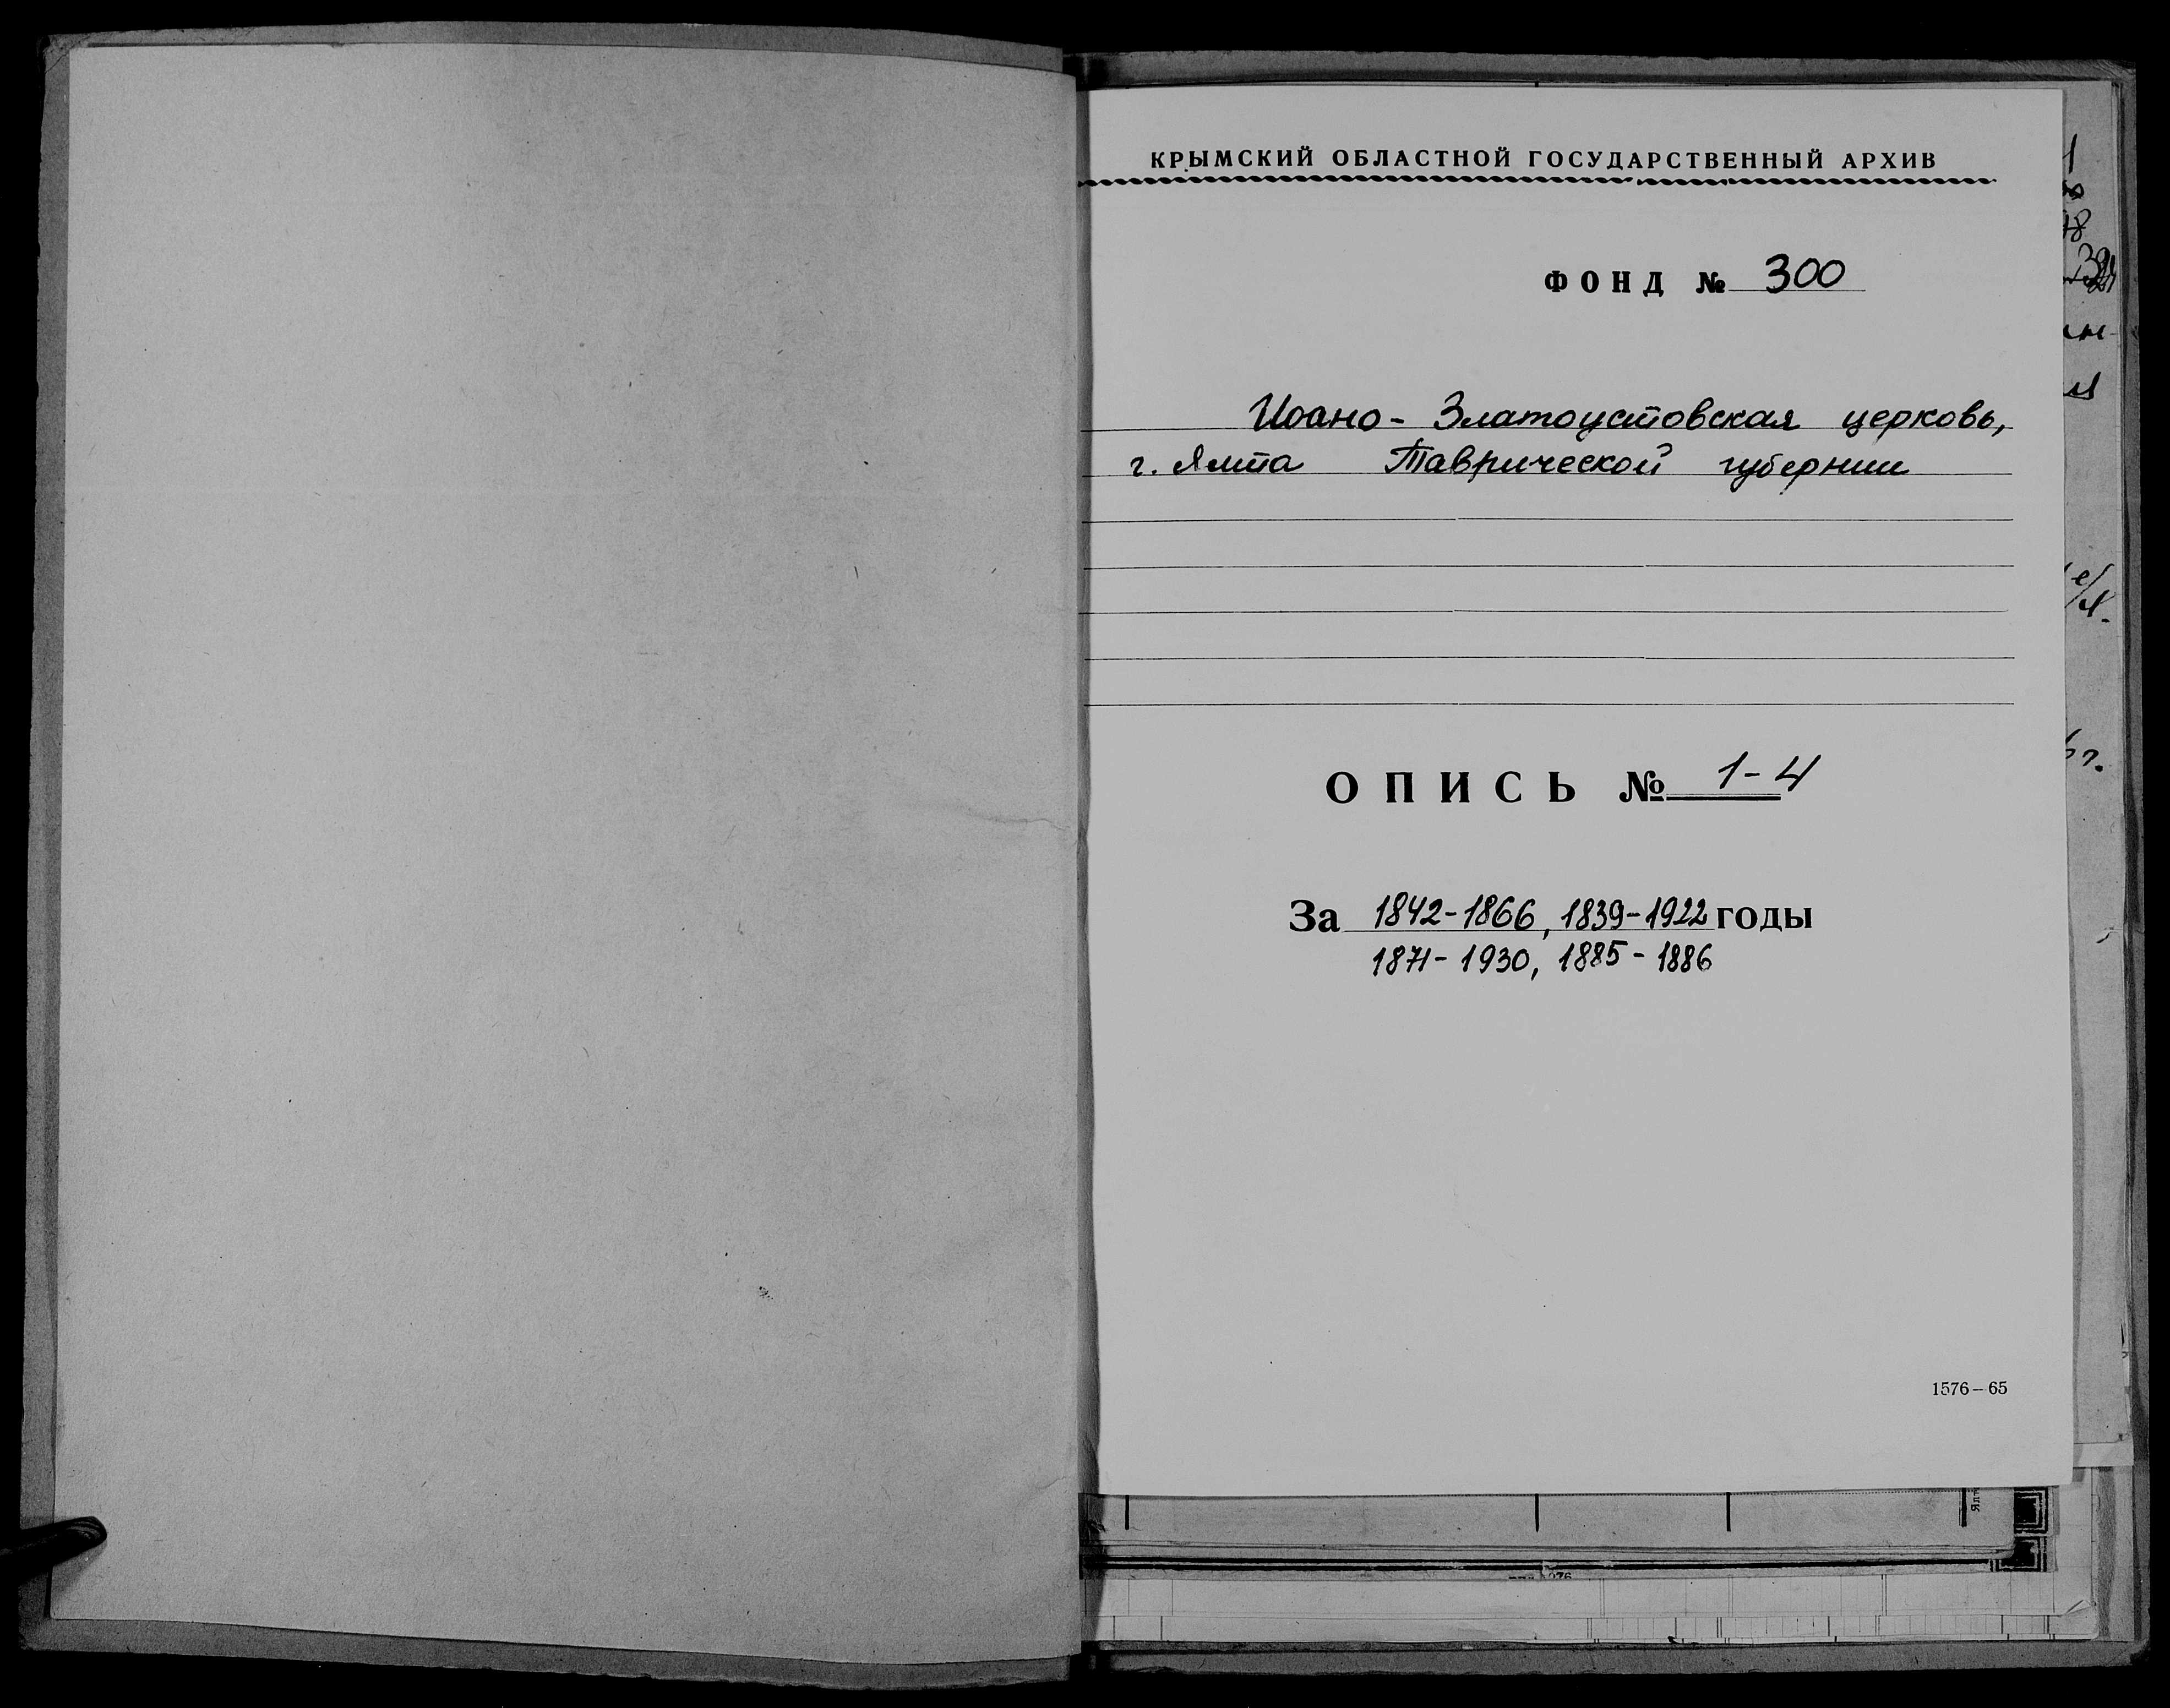 КРЫМСКИЙ ОБЛАСТНОЙ ГОСУДАРСТВЕННЫЙ АРХИВ
ФОНД № 300
Иоано-Златоустовская церковь,
г. Ялта Таврической губернии
ОПИСЬ № 1-4
За 1842-1866, 1839-1922 годы
1871-1930, 1885-1886
1576-65